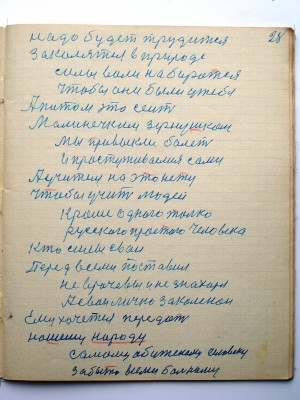 28
надо будет трудится
Закалятся в природе
силы воли набиратся
Чтобы они были у тебя
А потом это сеит
Малинечким зурнушкам
Мы привыкли болеть
И простуживатся сами
А учителя на это нету
Чтобы учить людей
Кроме одного только
русского простого Человека
Кто силы свои
Перед всеми поставил
не врачевы и не знахаря
А свои лично Закалкой
Ему хочется передать
нашему народу
самому обижскому человеку
забыто всеми больному